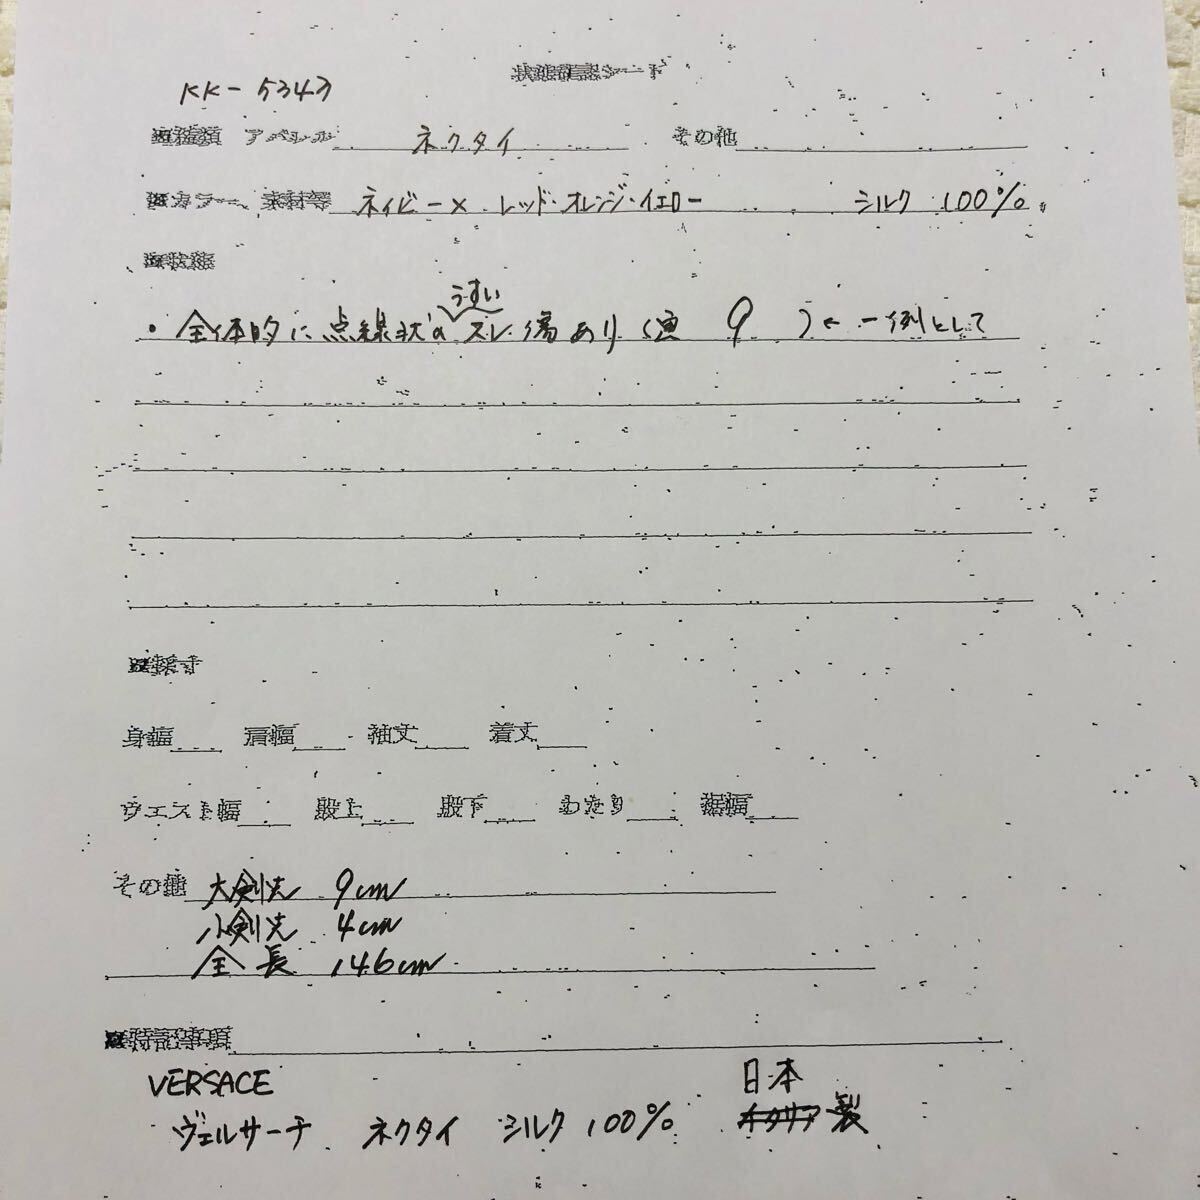 状態確認シート
KK-5343
■種類 アパレル ネクタイ その他
■カラー、素材等 ネイビー× レッド・オレンジ・イエロー シルク 100%
■状態
・全体的に点線状のうすいスレ傷あり(画 9 )← 一例として
■採寸
身幅 肩幅 袖丈 着丈
ウエスト幅 股上 股下 わたり 裾幅
その他 大剣先 9cm
小剣先 4cm
全長 146cm
■特記事項
VERSACE 日本
ヴェルサーチ ネクタイ シルク 100% イタリア製